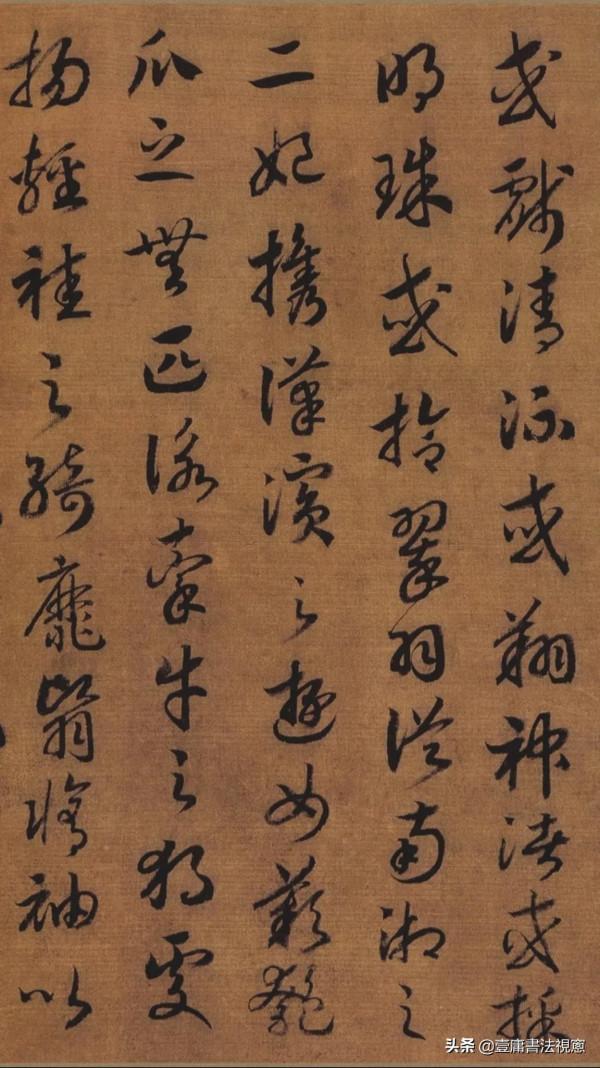 或戲清流或翔神渚或採
明珠或拾翠羽從南湘之
二妃攜漢濱之遊女歎匏
瓜之無匹詠牽牛之獨處
揚輕袿之綺靡翳脩袖以
头条 @壹庸書法視窻